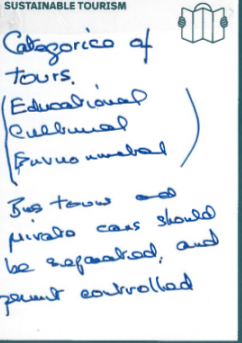 SUSTAINABLE TOURISM
Categories of
tours.
(Educational
Cultural
Environmental)
Bus tours and
private cars should
be separated, and
permit controlled